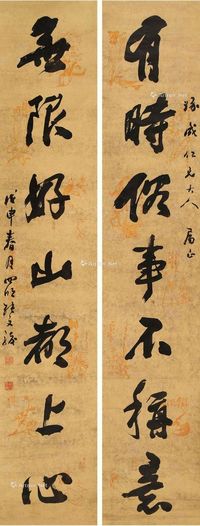 琢成仁兄大人 属正
有時俗事不稱意
無限好山都上心
戊申春月四明張文